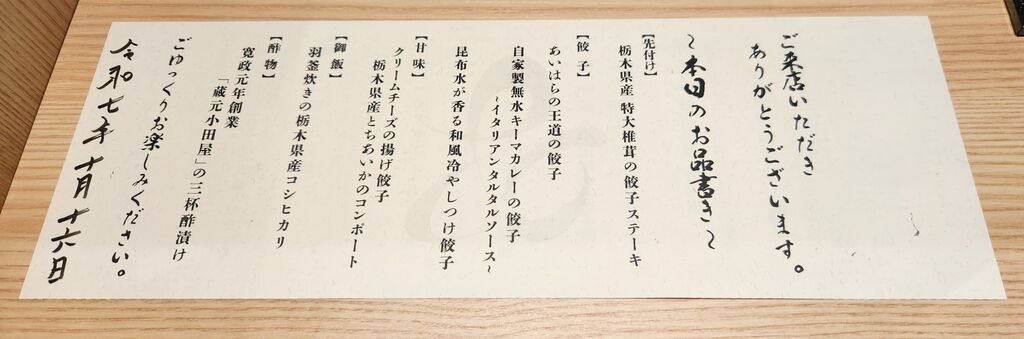 ご来店いただき
ありがとうございます。
～本日のお品書き～
【先付け】
栃木県産 特大椎茸の餃子ステーキ
【餃子】
あいはらの王道の餃子
自家製無水キーマカレーの餃子
～イタリアンタルタルソース～
昆布水が香る和風冷やしつけ餃子
【甘味】
クリームチーズの揚げ餃子
栃木県産とちあいかのコンポート
【御飯】
羽釜炊きの栃木県産コシヒカリ
【酢物】
寛政元年創業
「蔵元小田屋」の三杯酢漬け
ごゆっくりお楽しみください。
令和七年十月十六日